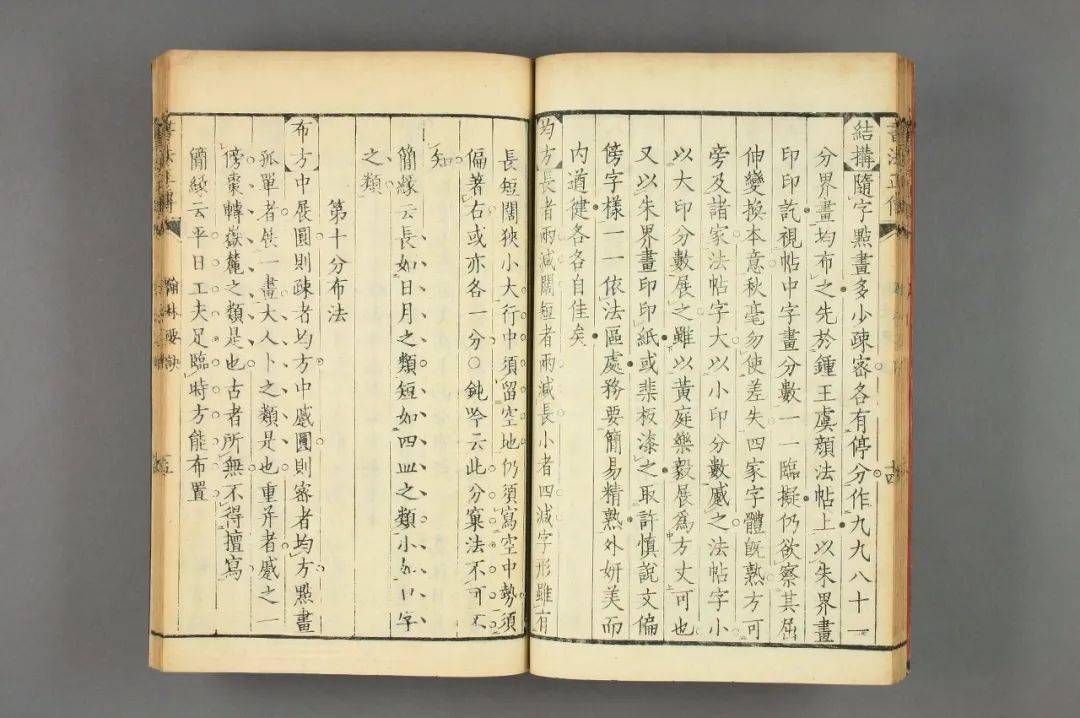 結構隨字點畫多少疎密各有停分作九九八十一
分界畫均布之先於鍾王虞顔法帖上以朱界畫
印印訖視帖中字畫分數一一臨擬仍欲察其屈
伸變換本意秋毫勿使差失四家字體旣熟方可
旁及諸家法帖字大以小印分數蹙之法帖字小
以大印分數展之雖以黃庭樂毅展爲方丈可也
又以朱界畫印印紙或棐板漆之取許慎說文偏
傍字樣一一依法區處務要簡易精熟外妍美而
內遒健各各自佳矣
均方長者兩减闊短者兩减長小者四减字形雖有
長短闊狹小大行中須留空地仍須寫空中勢須
偏著右或亦各一分○鈍吟云此分窠法不可不
知
簡緣云長如日月之類短如四皿之類小如口字
之類
第十分布法
布方中展圓則疎者均方中蹙圓則密者均方點畫
孤單者展一畫大人卜之類是也重幷者蹙之一
傍棗轉嶽麓之類是也古者所無不得擅寫
簡緣云平日工夫足臨時方能布置
翰林要訣